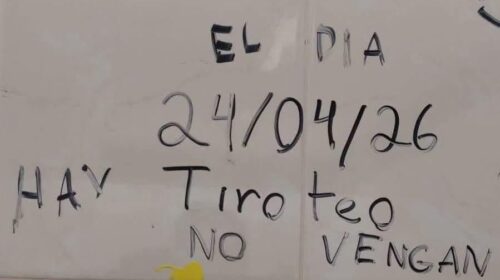 EL DIA
24/04/26
HAY Tiroteo
NO VENGAN